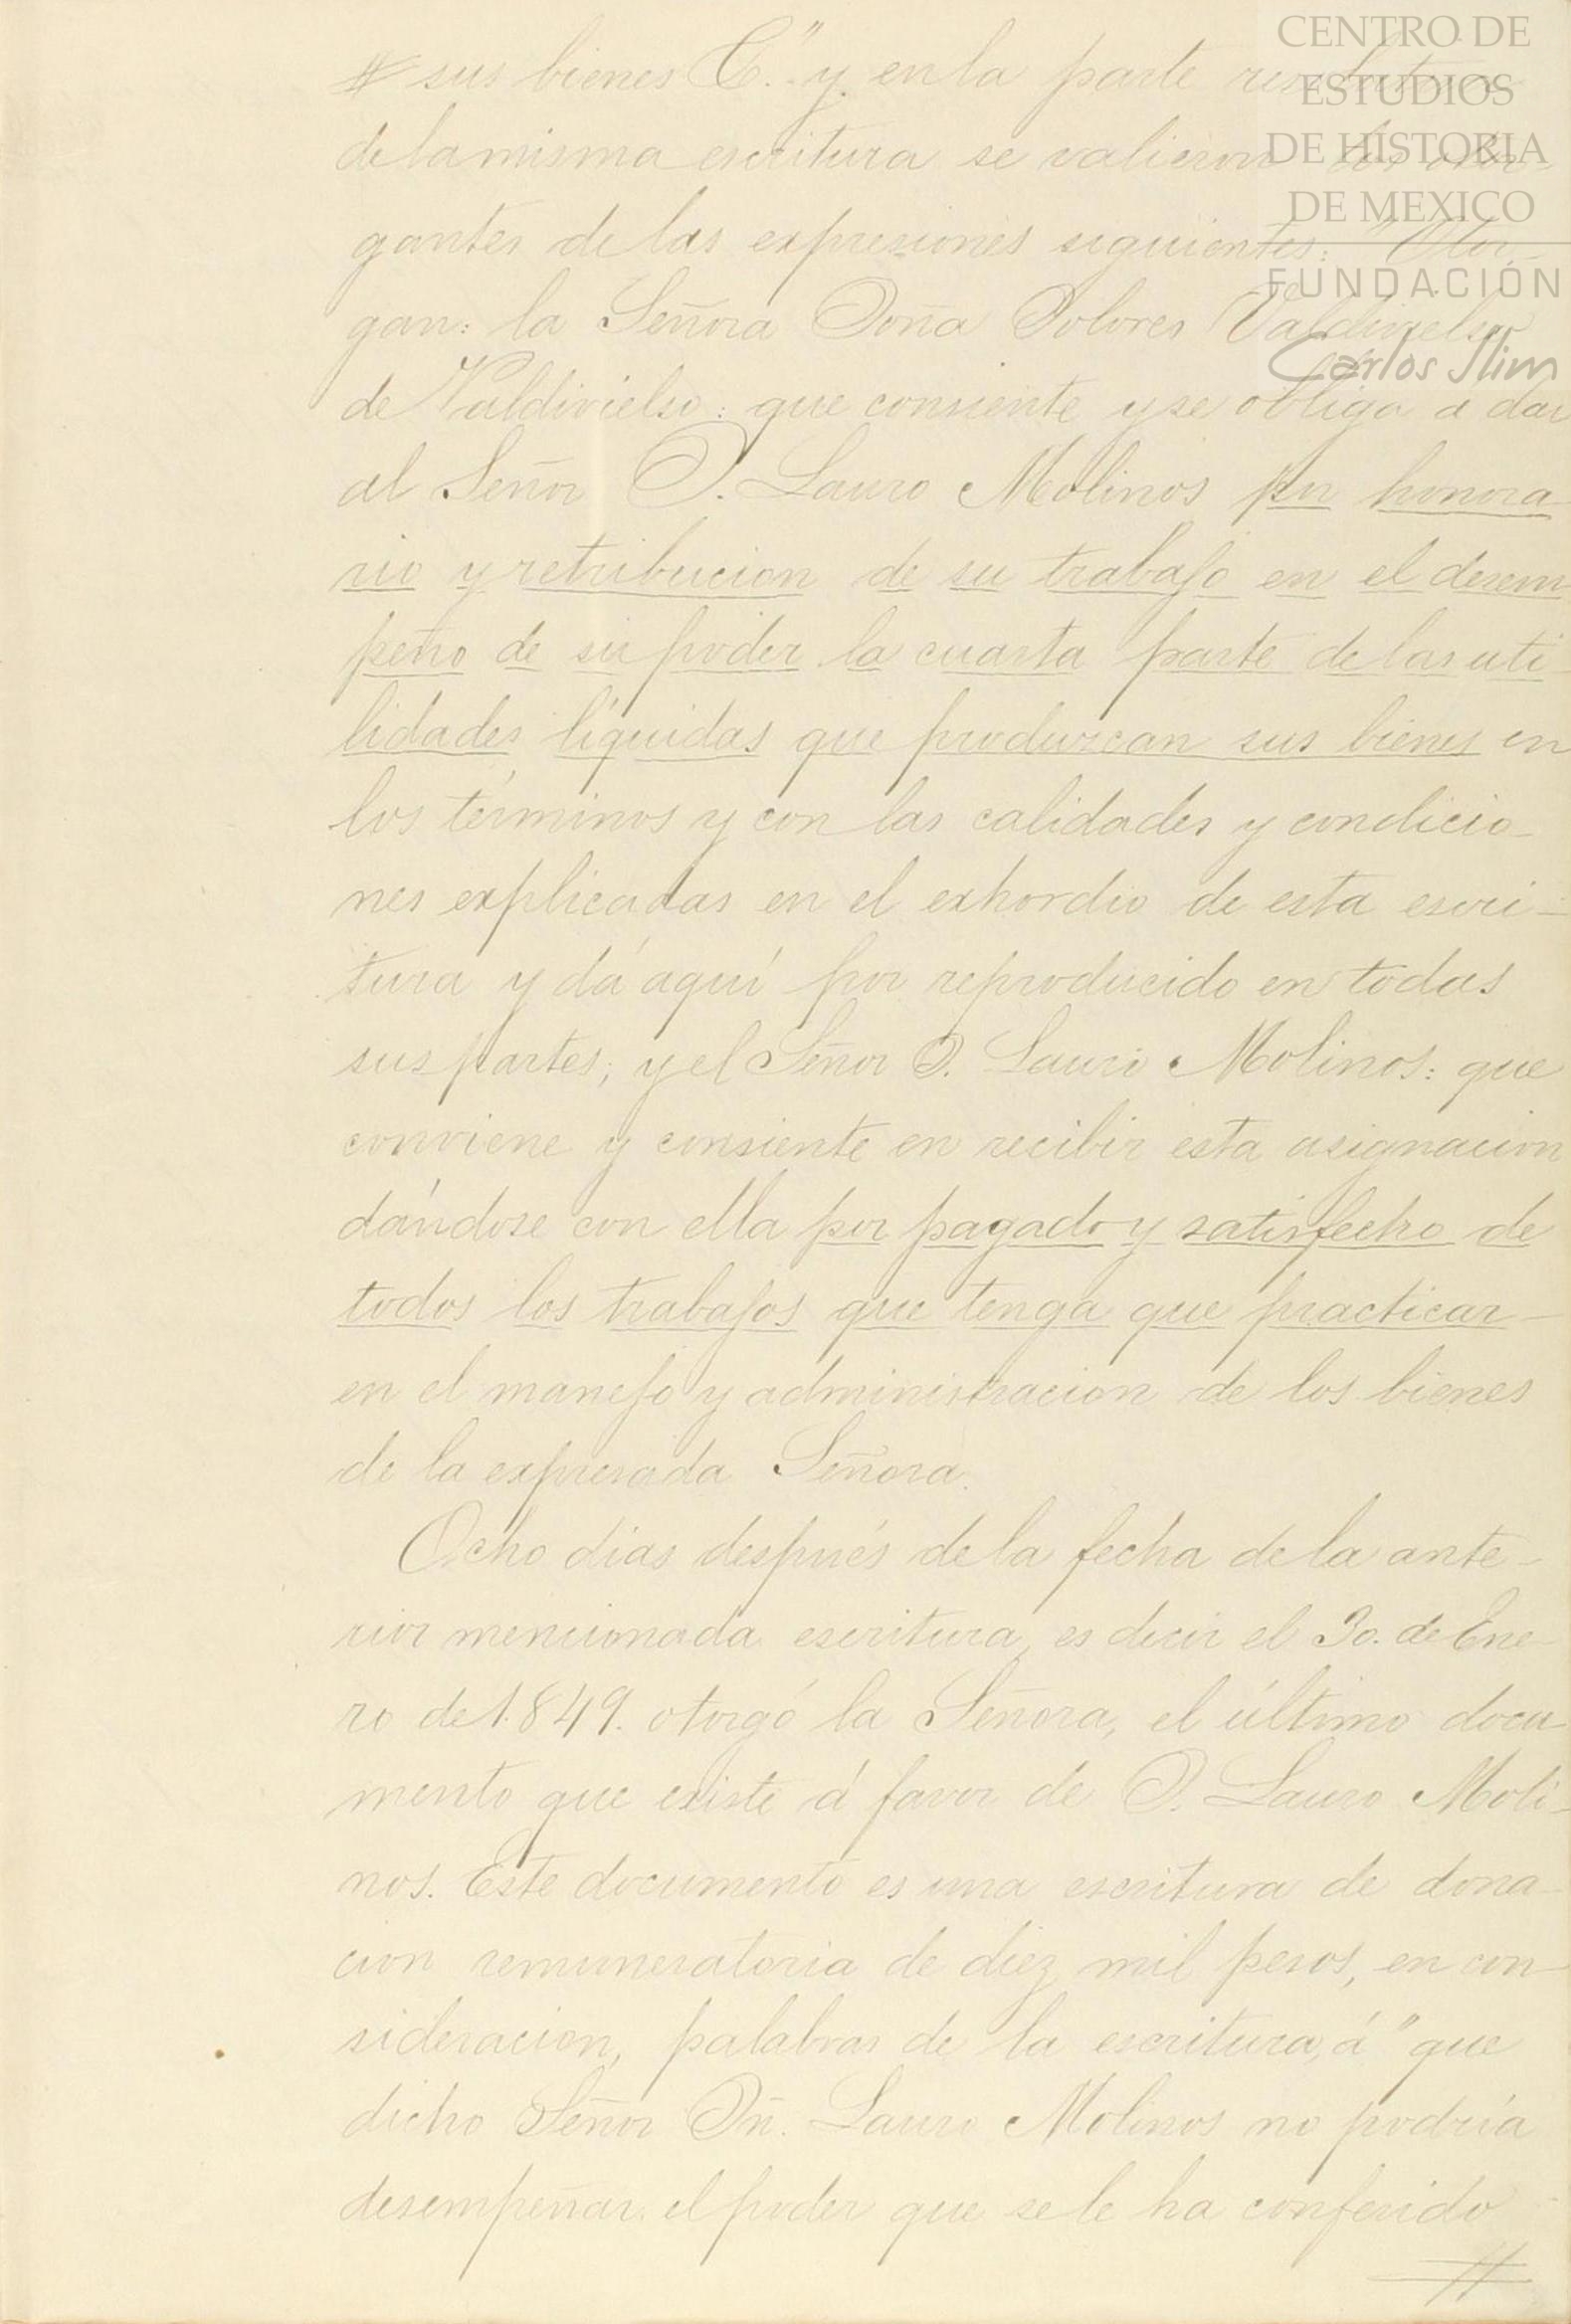 CENTRO DE
ESTUDIOS
DE HISTORIA
DE MEXICO
FUNDACIÓN
Carlos Slim
# sus bienes &." y en la parte resolutiva
de la misma escritura se valieron los otor-
gantes de las expresiones siguientes: "Otor-
gan: la Señora Doña Dolores Valdivielso
de Valdivielso: que consiente y se obliga a dar
al Señor D. Lauro Molinos por honora
rio y retribucion de su trabajo en el desem
peño de su poder la cuarta parte de las uti-
lidades líquidas que produzcan sus bienes en
los términos y con las calidades y condicio-
nes explicadas en el exhordio de esta escri-
tura y dá aquí por reproducido en todas
sus partes; y el Señor D. Lauro Molinos: que
conviene y consiente en recibir esta asignacion
dándose con ella por pagado y satisfecho de
todos los trabajos que tenga que practicar-
en el manejo y administracion de los bienes
de la expresada Señora.
Ocho dias después de la fecha de la ante-
rior mencionada escritura, es decir el 30. de Ene-
ro de 1.849. otorgó la Señora, el último docu-
mento que existe á favor de D. Lauro Moli-
nos. Este documento es una escritura de dona-
cion remuneratoria de diez mil pesos, en con-
sideracion, palabras de la escritura, á "que
dicho Señor Dñ. Lauro Molinos no podría
desempeñar el poder que se le ha conferido
#